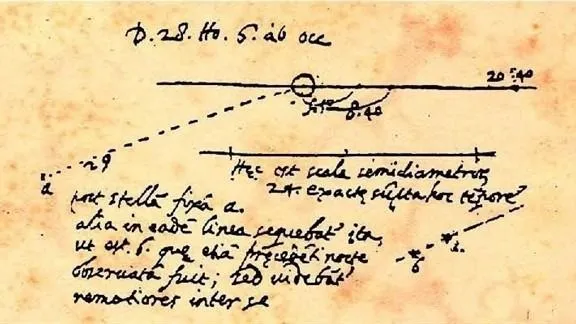 D. 28. Ho. 6. ab occ
20.40
8.40
29
a
Hęc est scala semidiametror
24. exacte sūpta hoc tēpore
post stellā fixā a.
alia in eādē linea sequebat' ita,
ut est b. quę etiā pręcedēti nocte
observata fuit; sed videbāt'
remotiores inter se
b